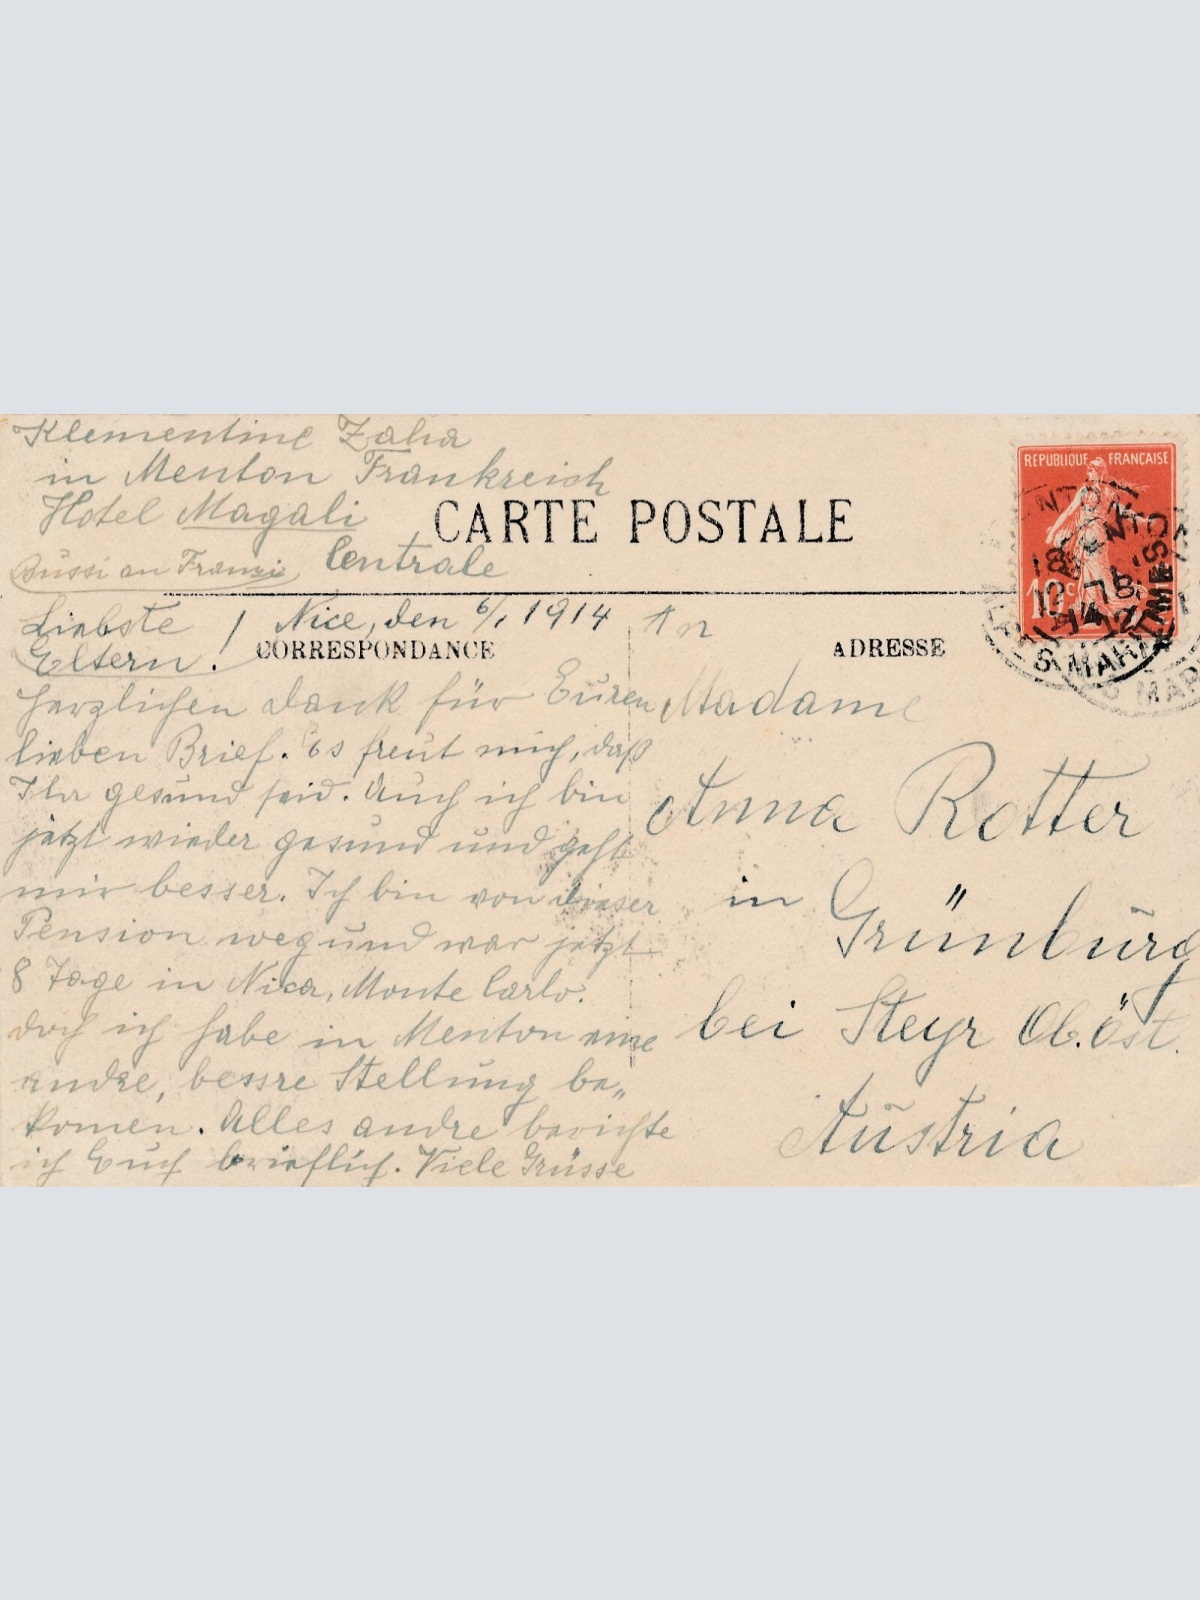 Klementine Zaha
in Menton Frankreich
Hotel Magali
Centrale
Bussi an Franzi
CARTE POSTALE
Nice, den 6/1 1914
CORRESPONDANCE
Liebste
Eltern!
Herzlichen Dank für Euren
lieben Brief. Es freut mich, daß
Ihr gesund seid. Auch ich bin
jetzt wieder gesund und geht
mir besser. Ich bin von dieser
Pension weg und war jetzt
8 Tage in Nica, Monte Carlo.
doch ich habe in Menton eine
andre, bessre Stellung be„
komen. Alles andre berichte
ich Euch brieflich. Viele Grüsse
ADRESSE
An
Madame
Anna Rotter
in Grünburg
bei Steyr Ob.öst.
Austria
REPUBLIQUE FRANÇAISE
10c